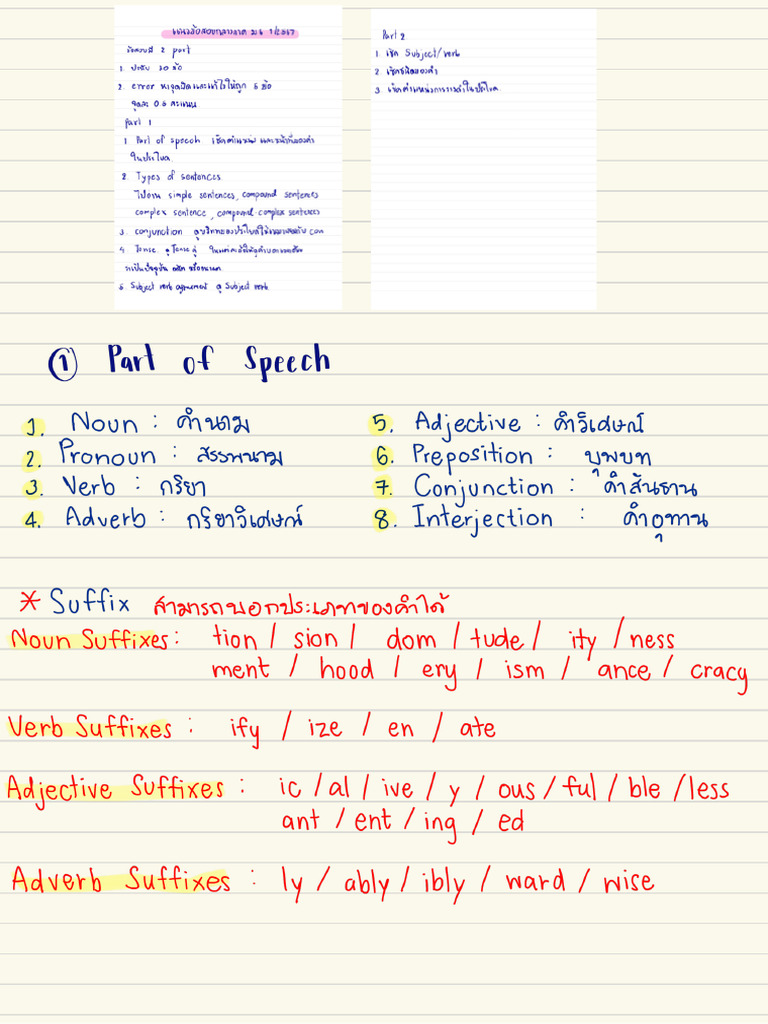 แนวข้อสอบกลางภาค ม.6 1/2567
ข้อสอบมี 2 part
1. ปรนัย 30 ข้อ
2. error หาจุดผิดและแก้ไขให้ถูก 5 ข้อ
จุดละ 0.5 คะแนน
Part 1
1 Part of speech เช็คตำแหน่ง และหน้าที่ของคำ
ในประโยค
2. Types of sentences
ไปอ่าน simple sentences, compound sentences
complex sentence, compound-complex sentences
3. conjunction ดูบริบทของประโยคให้เหมาะสมกับ con
4. Tense ดู Tense
5. Subject verb agreement ดู Subject verb
Part 2
1. เช็ค Subject/verb
2. เช็คชนิดของคำ
3. เช็คตำแหน่งการวางคำในประโยค
① Part of Speech
1. Noun : คำนาม
2. Pronoun : สรรพนาม
3. Verb : กริยา
4. Adverb : กริยาวิเศษณ์
5. Adjective : คำวิเศษณ์
6. Preposition : บุพบท
7. Conjunction : คำสันธาน
8. Interjection : คำอุทาน
* Suffix สามารถบอกประเภทของคำได้
Noun Suffixes : tion / sion / dom / tude / ity / ness
ment / hood / ery / ism / ance / cracy
Verb Suffixes : ify / ize / en / ate
Adjective Suffixes : ic / al / ive / y / ous / ful / ble / less
ant / ent / ing / ed
Adverb Suffixes : ly / ably / ibly / ward / wise